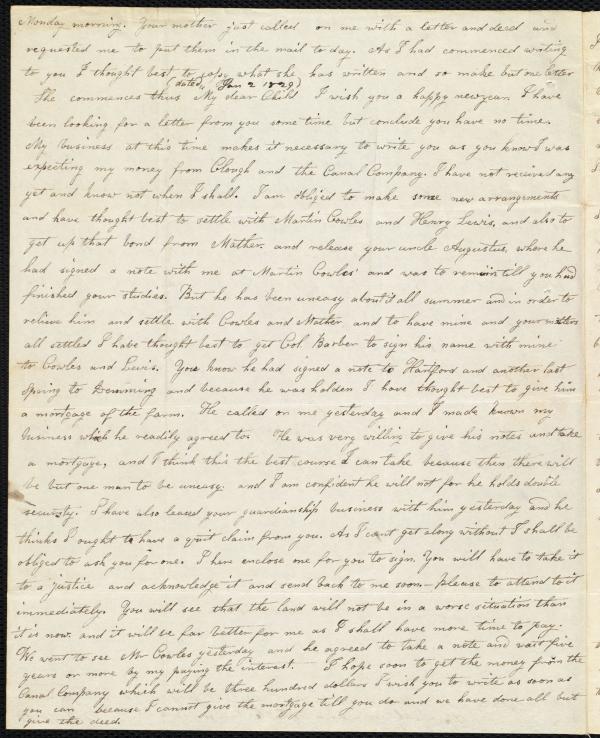 Monday morning. Your mother just called on me with a letter and deed and
requested me to put them in the mail to day. As I had commenced writing
to you I thought best to copy what she has written and so make but one letter
(dated, Jan 2 1829)
She commences thus My dear Child I wish you a happy newyear. I have
been looking for a letter from you some time but conclude you have no time.
My business at this time makes it necessary to write you as you know I was
expecting my money from Clough and the Canal Company. I have not received any
yet and know not when I shall. I am obliged to make some new arrangements
and have thought best to settle with Martin Cowles and Henry Lewis, and also to
get up that bond from Mather. and release your uncle Augustus, where he
had signed a note with me at Martin Cowles' and was to remain till you had
finished your studies. But he has been uneasy about it all summer and in order to
relieve him and settle with Cowles and Mather and to have mine and your matters
all settled I have thought best to get Col. Barber to sign his name with mine
to Cowles and Lewis. You know he had signed a note to Hartford and another last
spring to Demming and because he was holden I have thought best to give him
a mortgage of the farm. He called on me yesterday and I made known my
business which he readily agreed to. He was very willing to give his notes and take
a mortgage, and I think this the best course I can take because then there will
be but one man to be uneasy. and I am confident he will not for he holds double
security. I have also leased your guardianship business with him yesterday and he
thinks I ought to have a quit claim from you. As I cant get along without I shall be
obliged to ask you for one. I have enclose one for you to sign. You will have to take it
to a justice and acknowledge it and send back to me soon.— Please to attend to it
immediately. You will see that the land will not be in a worse situation than
it is now. and it will be far better for me as I shall have more time to pay.
We went to see Mr Cowles yesterday and he agreed to take a note and wait five
years or more by my paying the interest. — I hope soon to get the money from the
Canal Company which will be three hundred dollars I wish you to write as soon as
you can because I cannot give the mortgage till you do and we have done all but
give the deed.